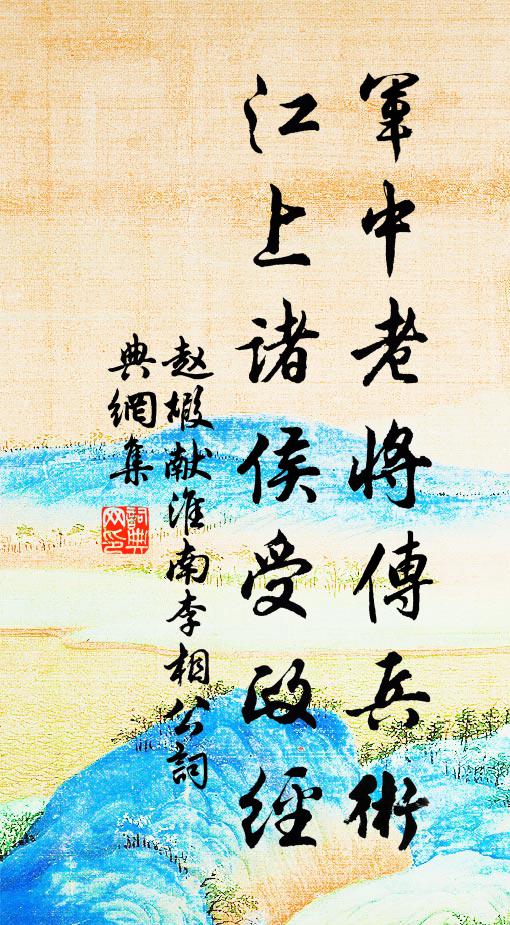 軍中老將傳兵術
江上諸侯受政經
赵嘏献淮南李相公詞
典網集
詞典
网印